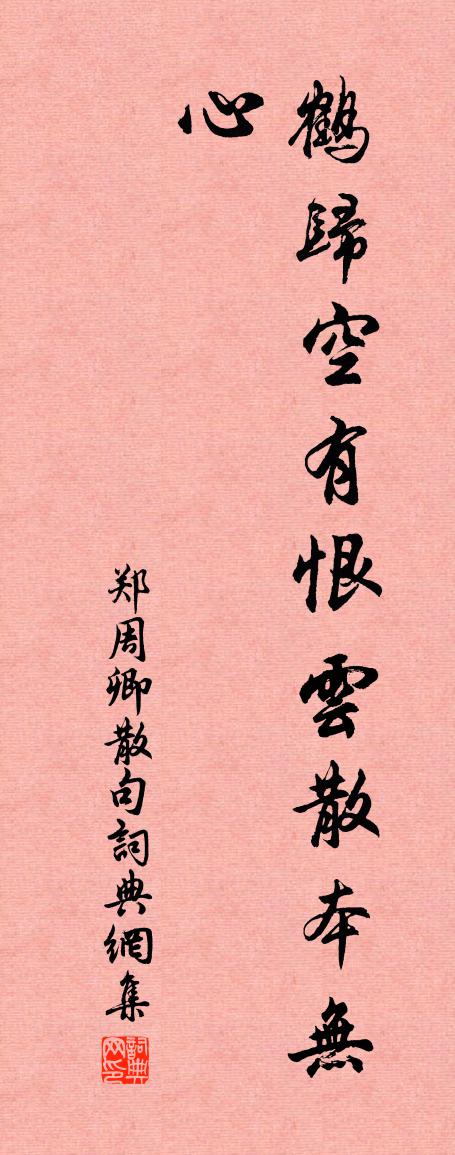 鶴歸空有恨雲散本無
心
郑周卿散句詞典網集
詞典网印